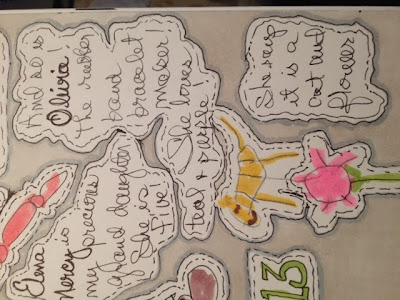 Elena
Mercy is
my precious
grand daughter,
She is
Five!
And so is
Olivia!
the rubber
band
bracelet
maker!
She loves
teal & purple
She says
it is a
cat and
flower
13